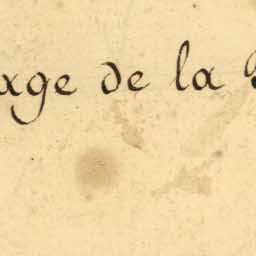 age de la